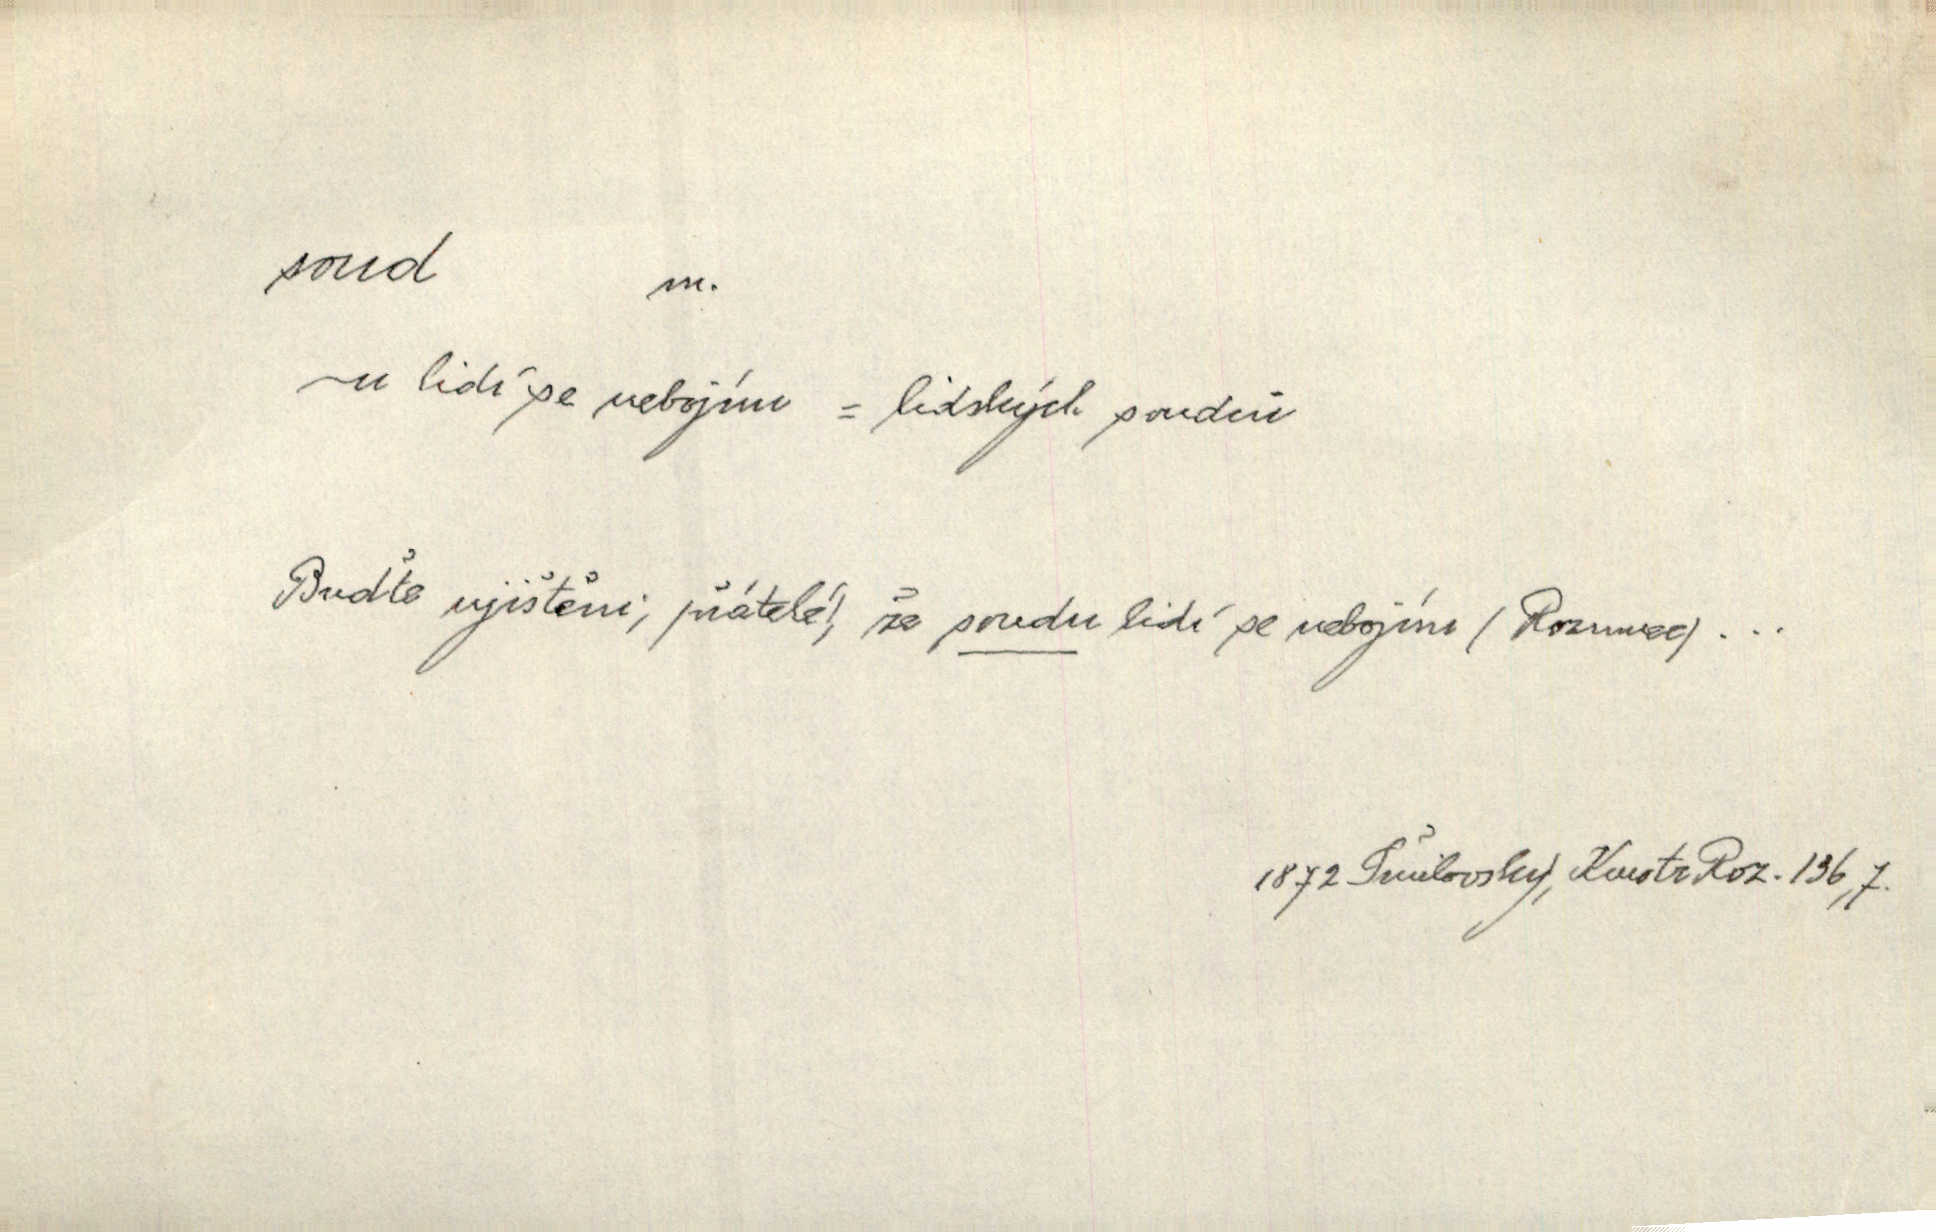 soud m.
~u lidí se nebojím = lidských soudů
Buďte ujištěni, přátelé!, že soudu lidí se nebojím (Rozumec) ...
1872 Šmilovský, KmotrRoz. 136,7.